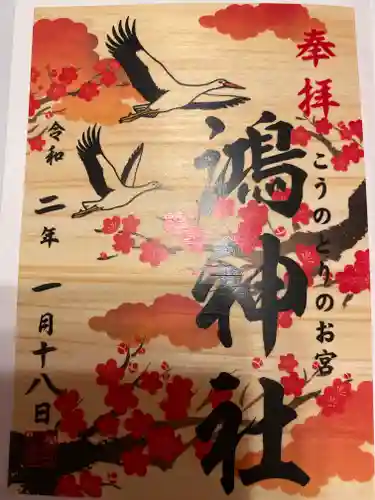 奉拝
こうのとりのお宮
鴻神社
令和二年一月十八日